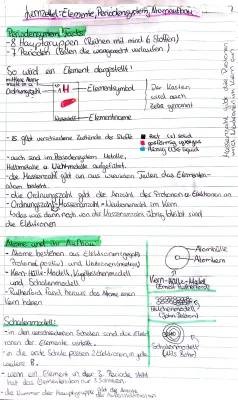 Lernzettel - Elemente, Periodensystem, Atomaufbau
Periodensystem
- 8 Hauptgruppen (Reihen mit mind 6 Stoffen)
- 7 Perioden (Zeilen die waagerecht verlaufen)
So wird ein Element dargestellt!
Ordnungszahl
H
Elementsymbol
Elementname
Der Kasten
wird auch
Zelle genannt
- Es gibt verschiedene Zustände der Stoffe
- auch sind im Periodensystem Metalle,
Halbmetalle & Nichtmetalle aufgeführt.
- die Massenzahl gibt an aus wievielen Teilen das Element
besteht.
- die Ordnungszahl gibt die Anzahl der Protonen & Elektronen an
- Ordnungszahl - Massenzahl = Neutronen im Kern
das was dann noch von der Massenzahl übrig bleibt sind
die Elektronen
Atome und ihr Aufbau
- Atome bestehen aus Elektronen (negativ)
Protonen (positiv) und Neutronen (neutral)
- Kern-Hülle-Modell, Kügelchenmodell
und Schalenmodell.
- Rutherford fand heraus das Atome einen
Kern haben
Atomhülle
Atomkern
Kern-Hülle-Modell
(Ernest Rutherford)
Teilchenmodell
(John Dalton)
Schalenmodell
(Nils Bohr)
Schalenmodell:
- in den verschiedenen Schalen sind die Elekt
ronen der Elemente verteilt.
- in die erste Schale passen 2 Elektronen, in jede
weitere 8.
- wenn ein Element in der 3. Periode steht
hat das Element also nur 3 Schalen.
- die Nummer der Hauptgruppe gibt die Anzahl
der Außenelektronen